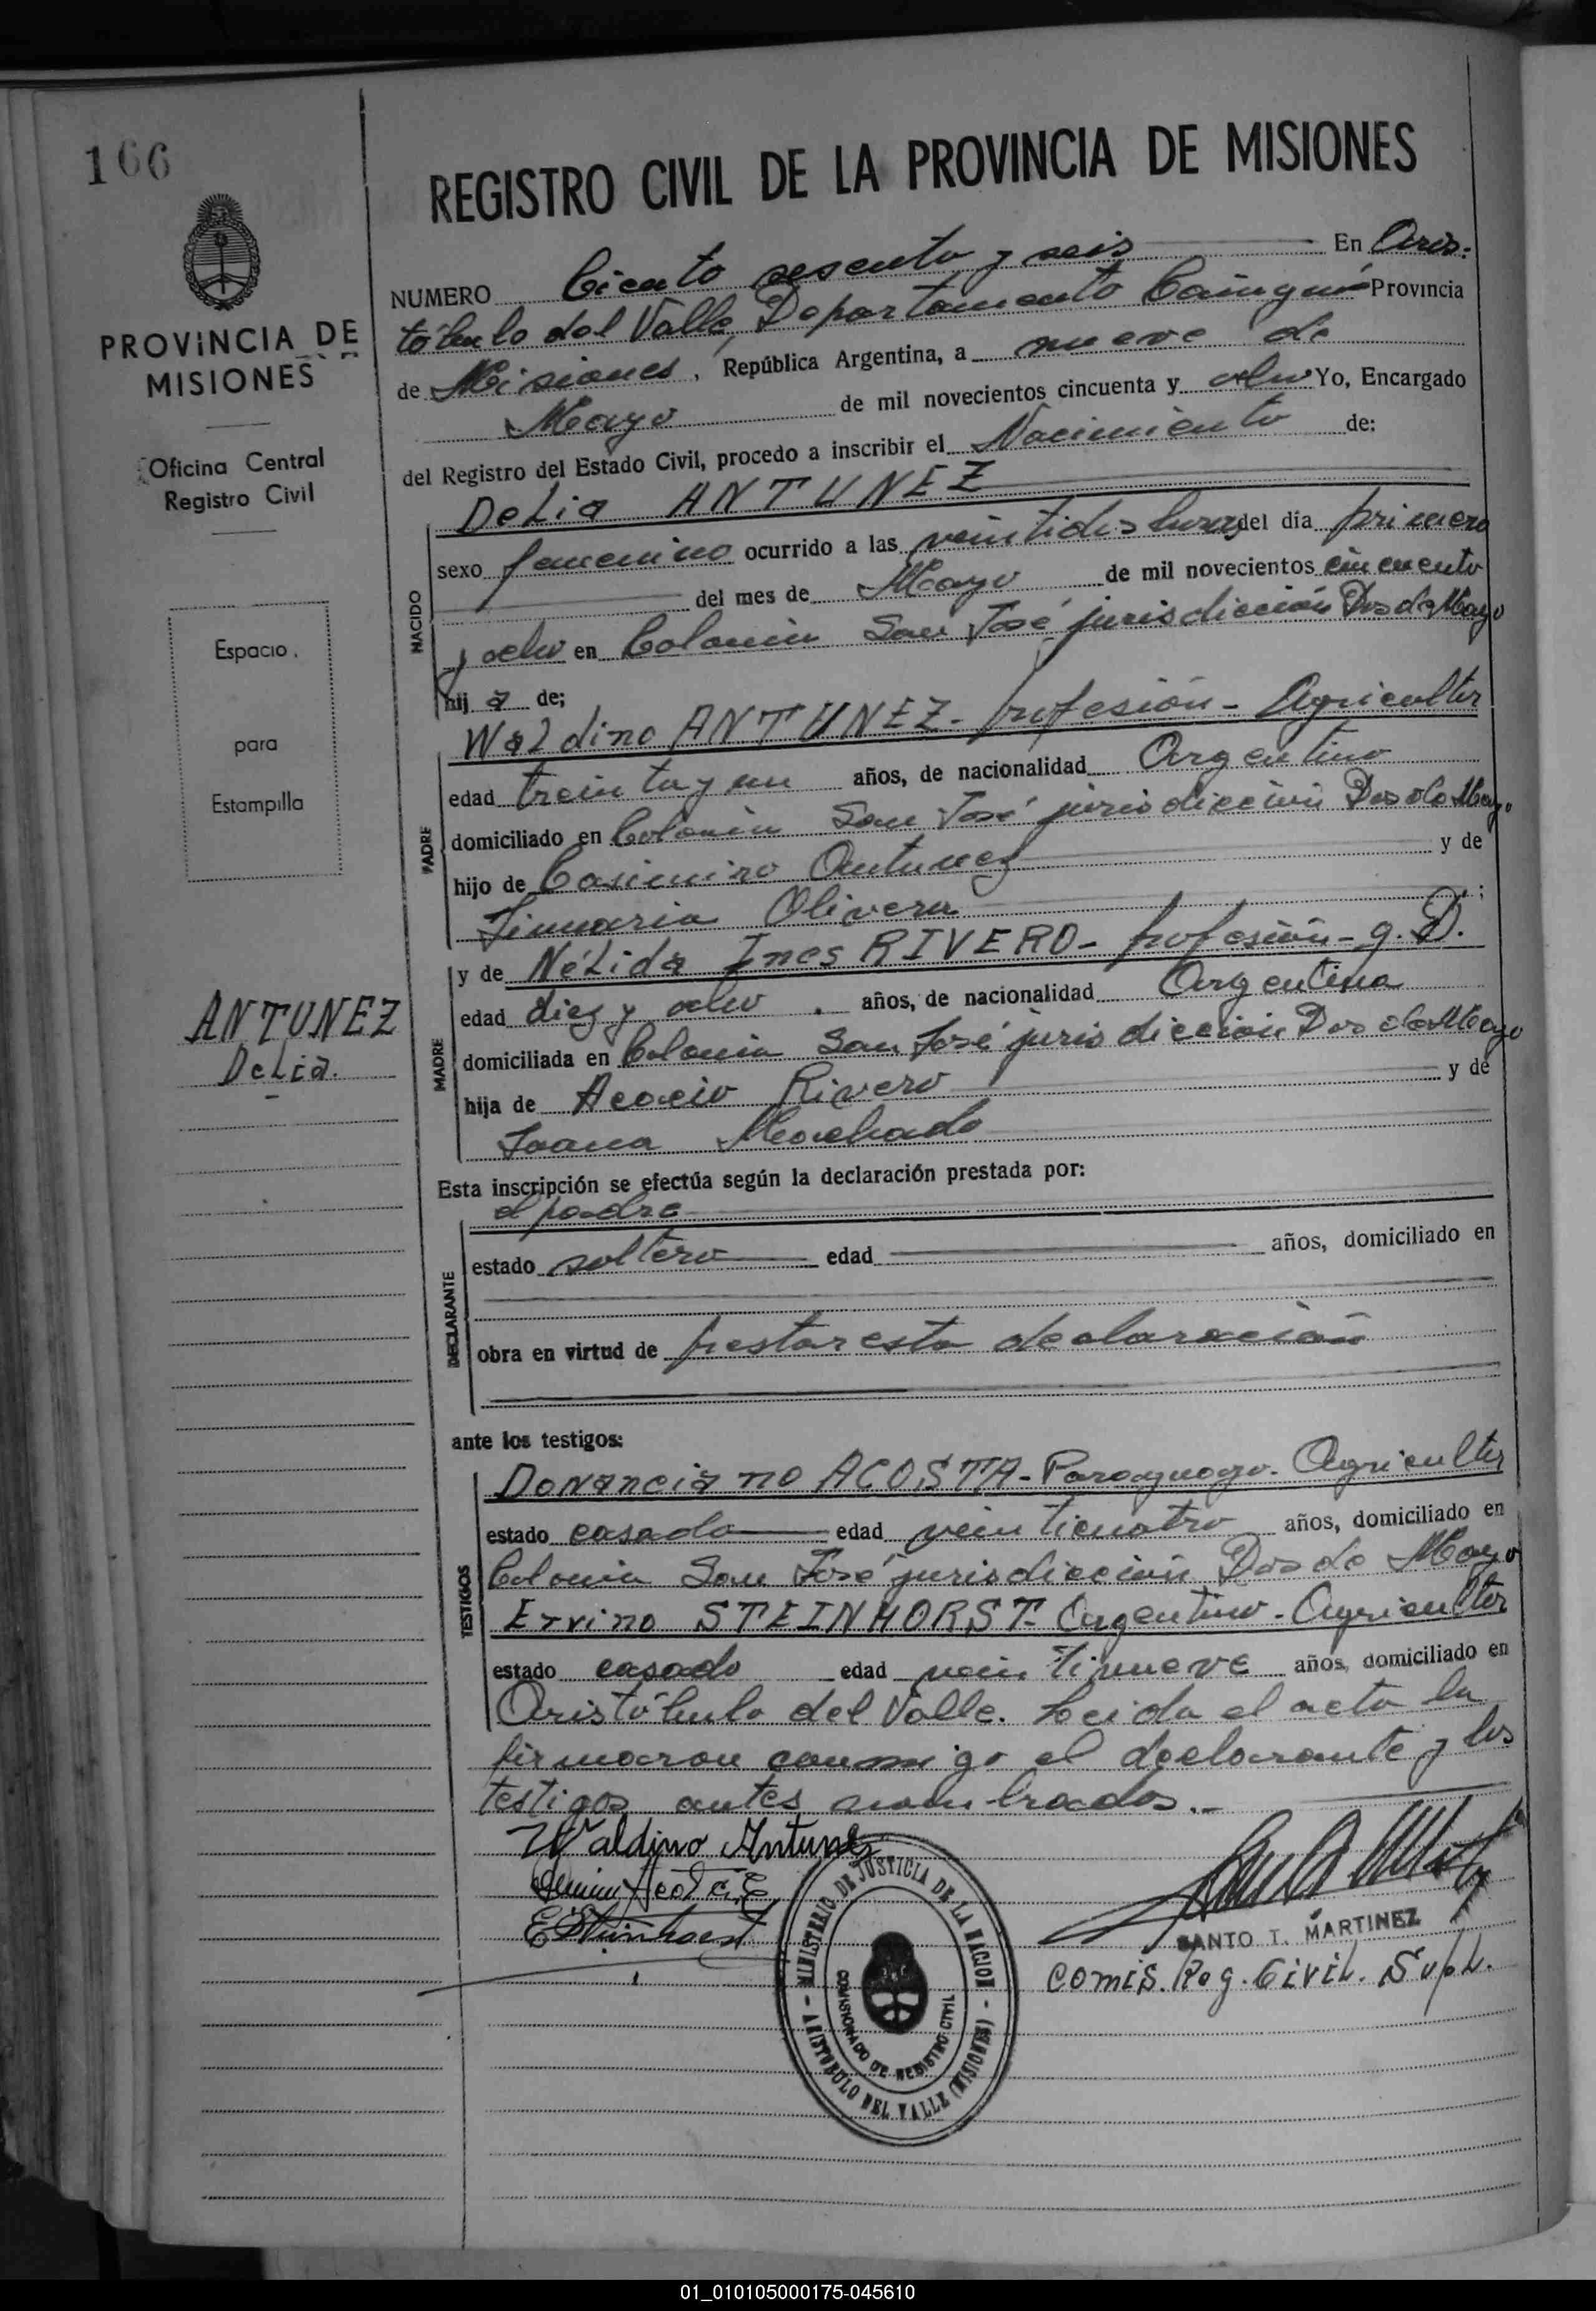 166
REGISTRO CIVIL DE LA PROVINCIA DE MISIONES
PROVINCIA DE
MISIONES
Oficina Central
Registro Civil
Espacio
para
Estampilla
ANTUNEZ
Delia.
NUMERO Ciento sesenta y seis En Aris:
tóbulo del Valle, Departamento Cainguás Provincia
de Misiones, República Argentina, a nueve de
Mayo de mil novecientos cincuenta y ocho Yo, Encargado
del Registro del Estado Civil, procedo a inscribir el Nacimiento de:
Delia ANTUNEZ
NACIDO
sexo femenino ocurrido a las veintidos horas del día primero
del mes de Mayo de mil novecientos cincuenta
y ocho en Colonia San José jurisdicción Dos de Mayo
hija de;
PADRE
Waldino ANTUNEZ- profesión- Agricultor
edad treinta y un años, de nacionalidad Argentino
domiciliado en Colonia San José jurisdicción Dos de Mayo
hijo de Casimiro Antunez y de
Olivera ;
MADRE
y de Nélida Ines RIVERO- profesión- q. D.
edad diez y ocho . años, de nacionalidad Argentina
domiciliada en Colonia San José jurisdicción Dos de Mayo
hija de Acacio Rivero y de
Juana Machado
Esta inscripción se efectúa según la declaración prestada por:
el padre
DECLARANTE
estado soltero edad años, domiciliado en
obra en virtud de prestar esta declaración
ante los testigos:
TESTIGOS
Donanciano ACOSTA- Paraguayo- Agricultor
estado casado edad veinticuatro años, domiciliado en
Colonia San José jurisdicción Dos de Mayo
Ervino STEINHORST- Argentino- Agricultor
estado casado edad veintinueve años, domiciliado en
Aristóbulo del Valle. Leida el acta la
firmaron conmigo el declarante y los
testigos antes nombrados.-
Waldino Antunez
E Steinhorst
MINISTERIO DE JUSTICIA DE LA NACION - ARISTOBULO DEL VALLE (MISIONES) -
COMISIONADO DE REGISTRO CIVIL
SANTO T. MARTINEZ
Comis. Reg. Civil. Supl.
01_010105000175-045610